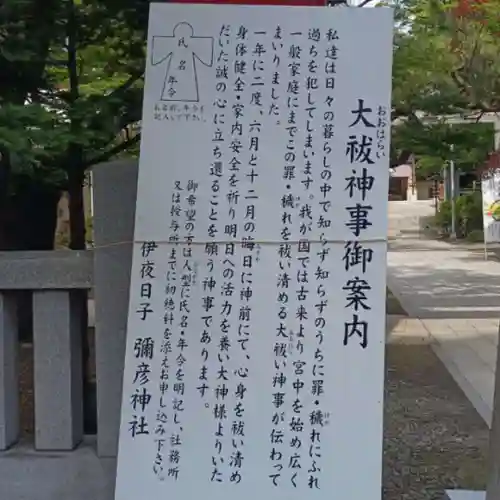 大祓神事御案内
おおはらい
私達は日々の暮らしの中で知らず知らずのうちに罪・穢れにふれ
けが
過ちを犯してしまいます。我が国では古来より宮中を始め広く
一般家庭にまでこの罪・穢れを祓い清める大祓い神事が伝わって
まいりました。
一年に二度、六月と十二月の晦日に神前にて、心身を祓い清め
身体健全・家内安全を祈り明日への活力を養い大神様よりいた
だいた誠の心に立ち還ることを願う神事であります。
御希望の方は人型に氏名・年令を明記し、社務所
又は授与所までに初穂料を添えお申し込み下さい。
伊夜日子 彌彦神社
氏名
年令
名前、年令を
記入して下さい。